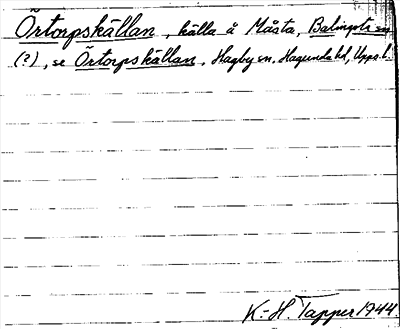 Örtorpskällan, källa å Måsta, Balingsta sn
(?), se Örtorpskällan, Hagby sn, Hagunda hd, Upps. l.
K.-H. Tapper 1944.